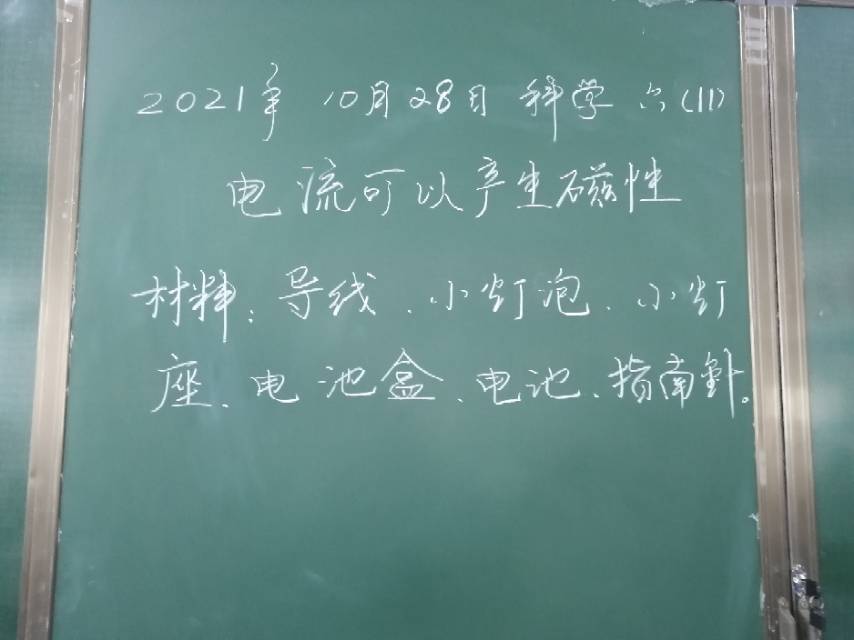 2021年 10月28日 科学 六(11)
电流可以产生磁性
材料:导线、小灯泡、小灯
座、电池盒、电池、指南針。